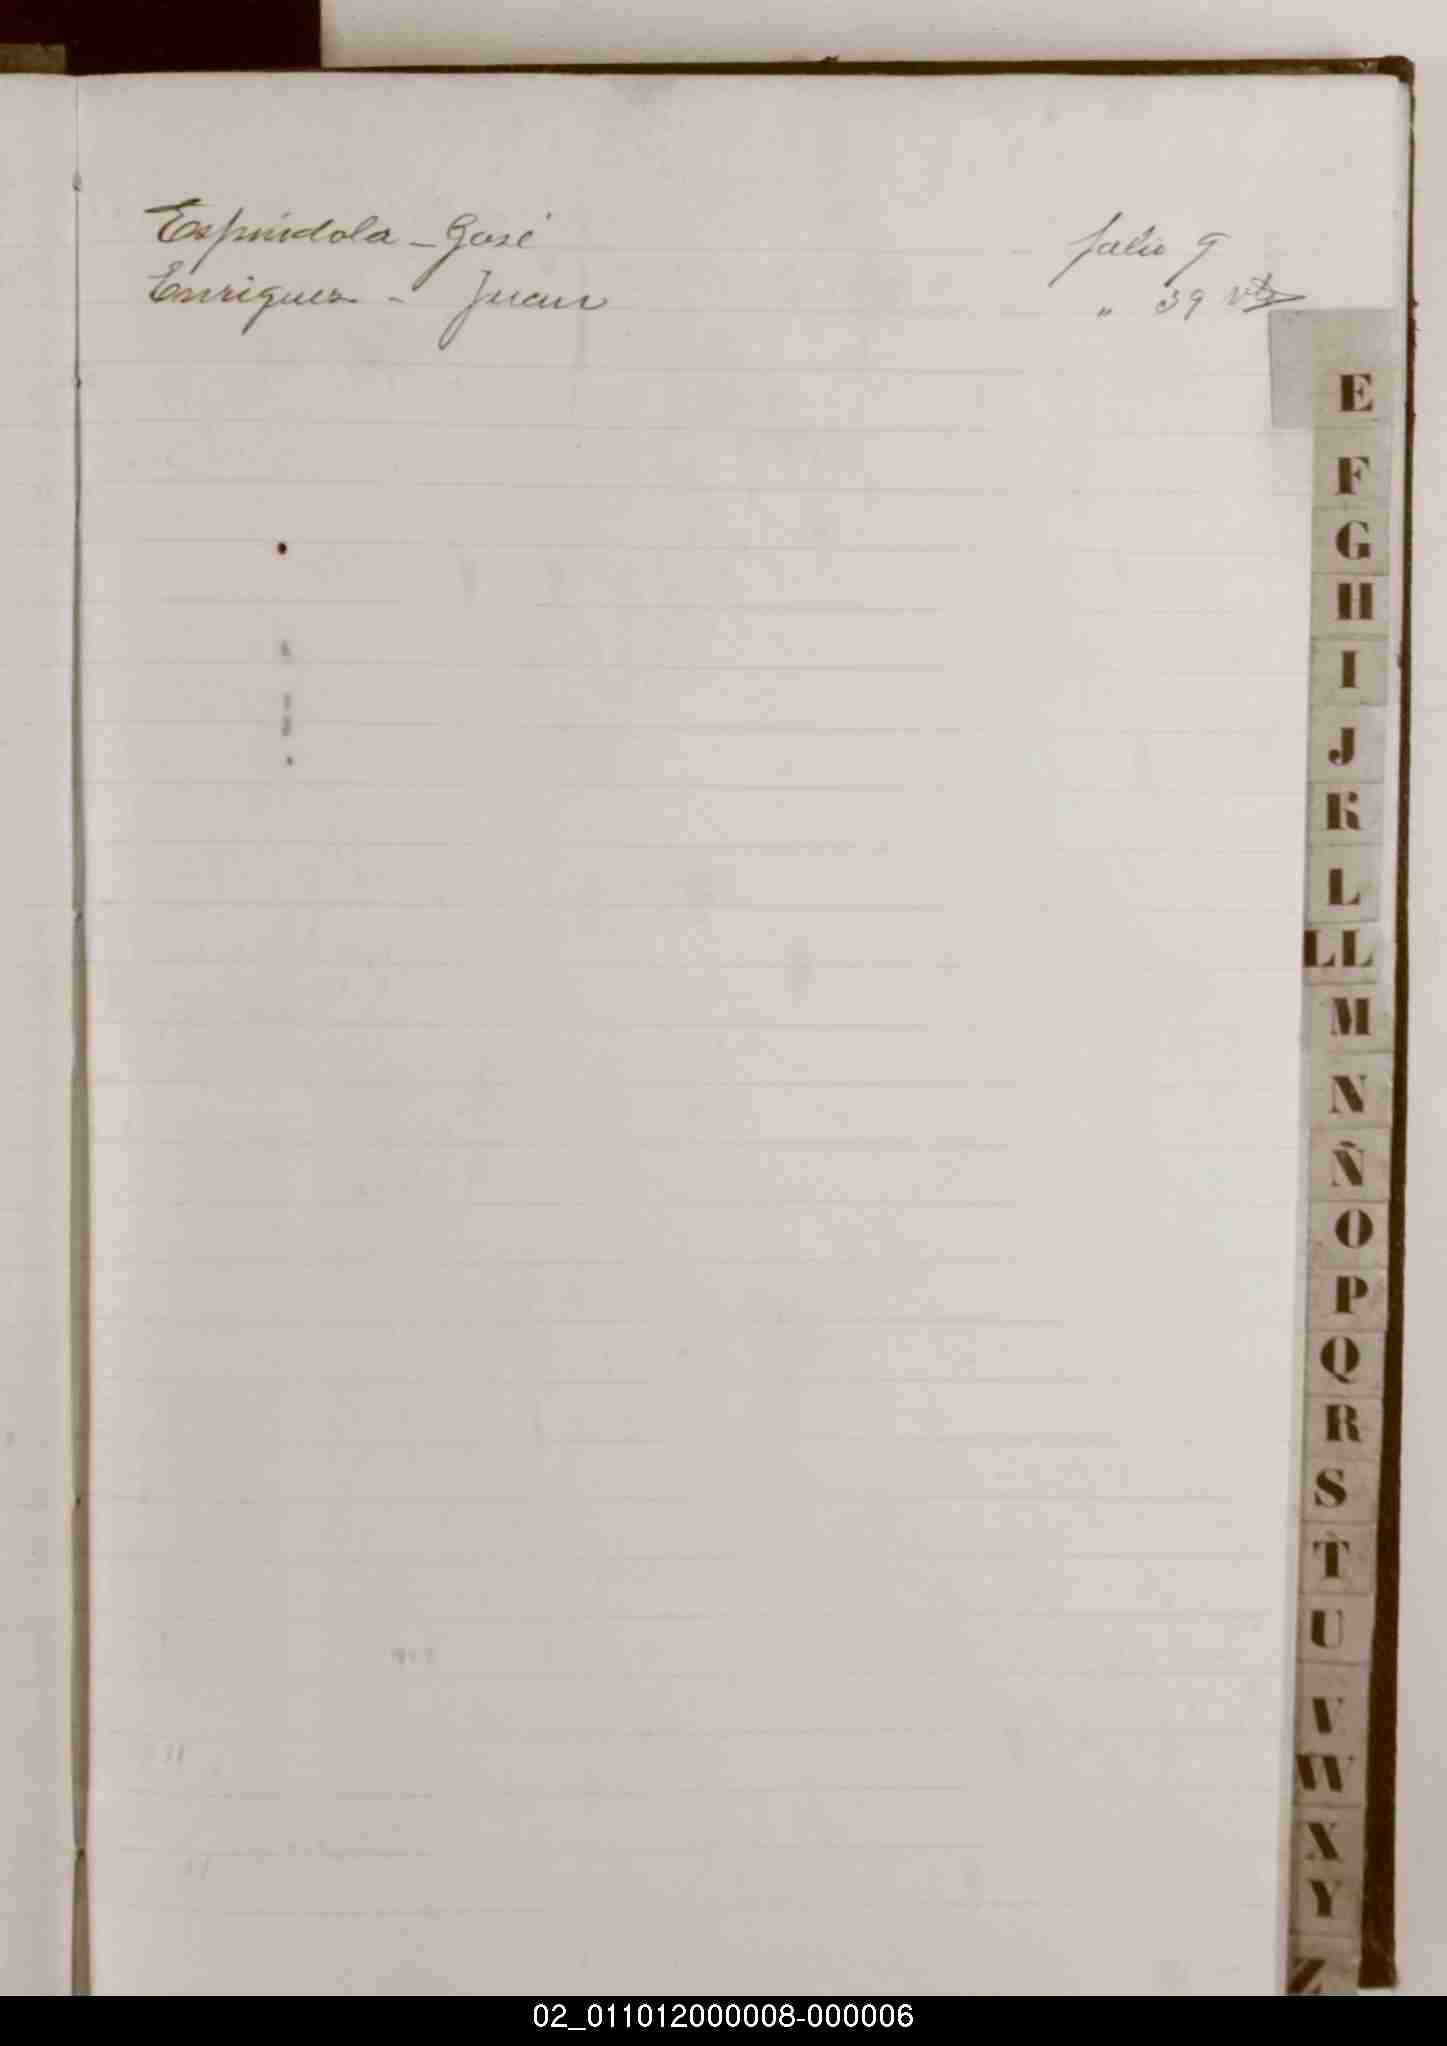 Espindola - José folio 9
Enriquez - Juan " 39 vta
E
F
G
H
I
J
K
L
LL
M
N
Ñ
O
P
Q
R
S
T
U
V
W
X
Y
Z
02_011012000008-000006